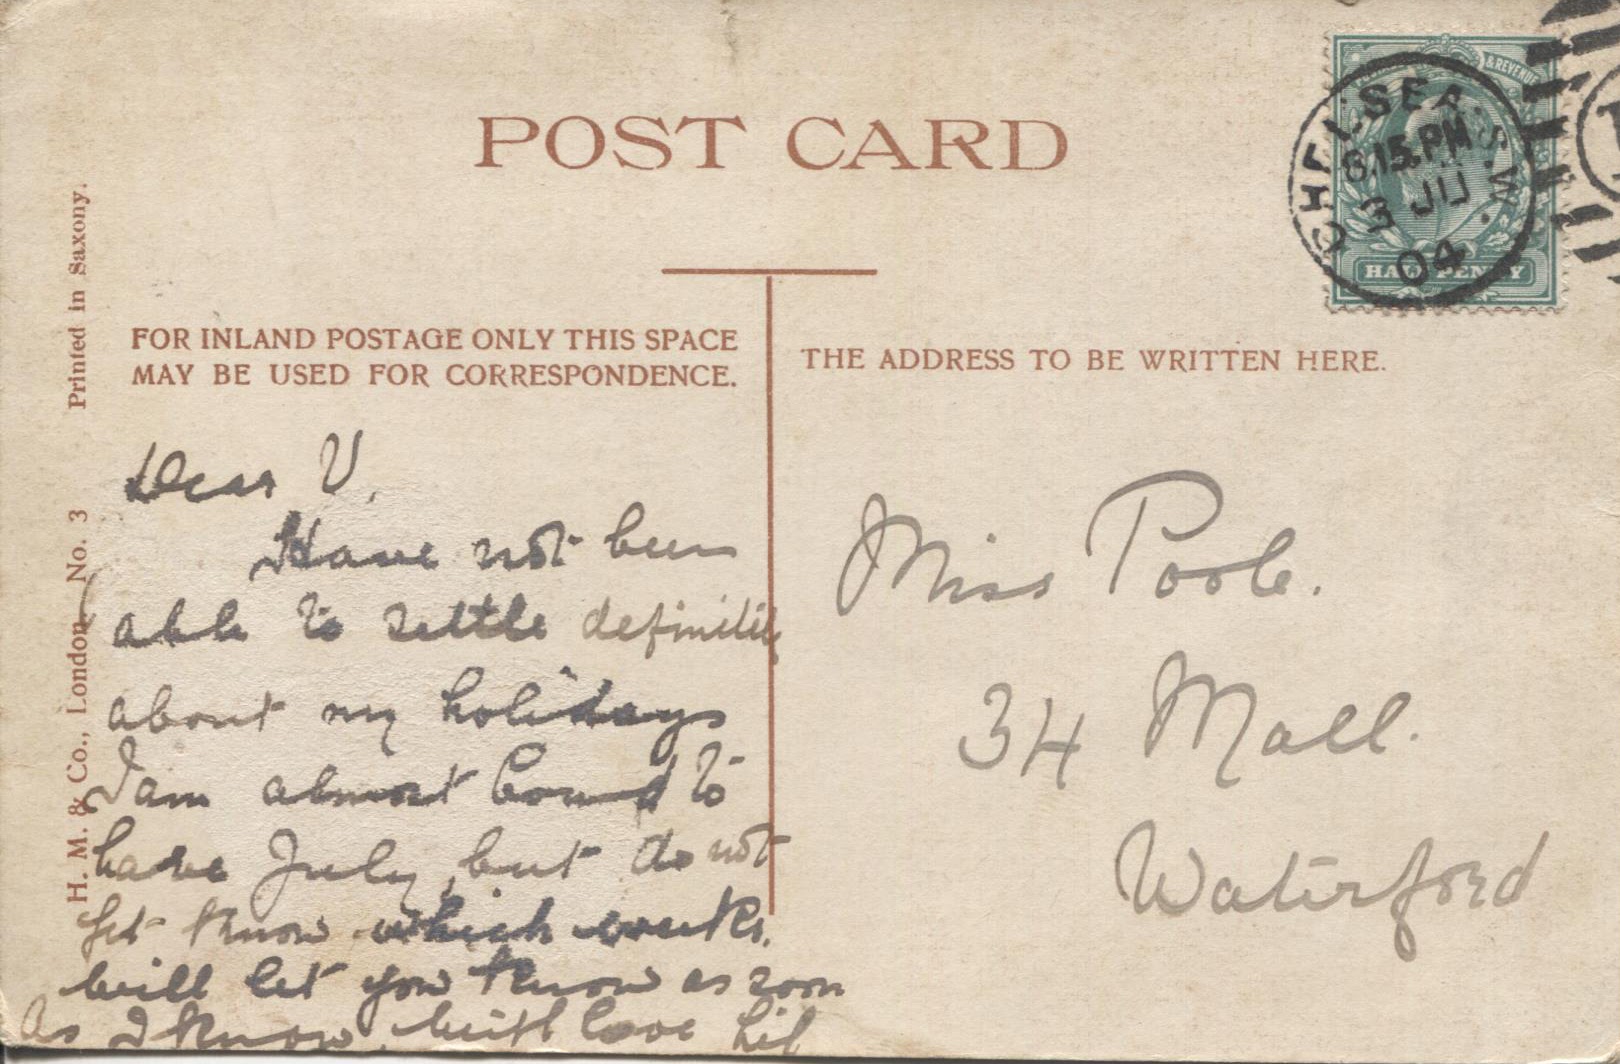 POST CARD
FOR INLAND POSTAGE ONLY THIS SPACE
MAY BE USED FOR CORRESPONDENCE.
THE ADDRESS TO BE WRITTEN HERE.
H. M. & Co., London, No. 3 Printed in Saxony.
& REVENUE
HALFPENNY
CHELSEA. S.W.
8.15.PM
3 JU
04
Dear V.
Have not been
able to settle definitely
about my holidays
I am almost bound to
have July, but do not
yet know which weeks.
will let you know as soon
as I know. with love
Miss Poole.
34 Mall.
Waterford